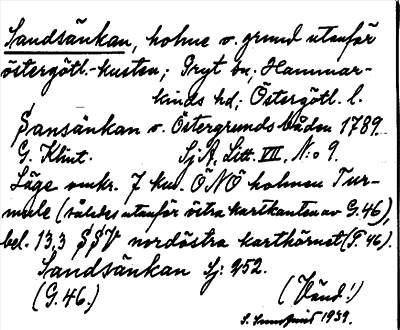 Sandsänkan, holme o. grund utanför
östergötl.-kusten; Gryt sn; Hammar-
kinds hd; Östergötl. l.
Sansänkan o. Östergrundsbåden 1789.
G. Klint. SjA, Litt. VII, N:o 9.
Läge omkr. 7 km. ÖNÖ holmen Tur-
mule (således utanför östra kartkanten av G.46),
bel. 13,3 SSV nordöstra karthörnet (G.46).
Sandsänkan Sj: 252.
(G.46.) (Vänd!)
1939.